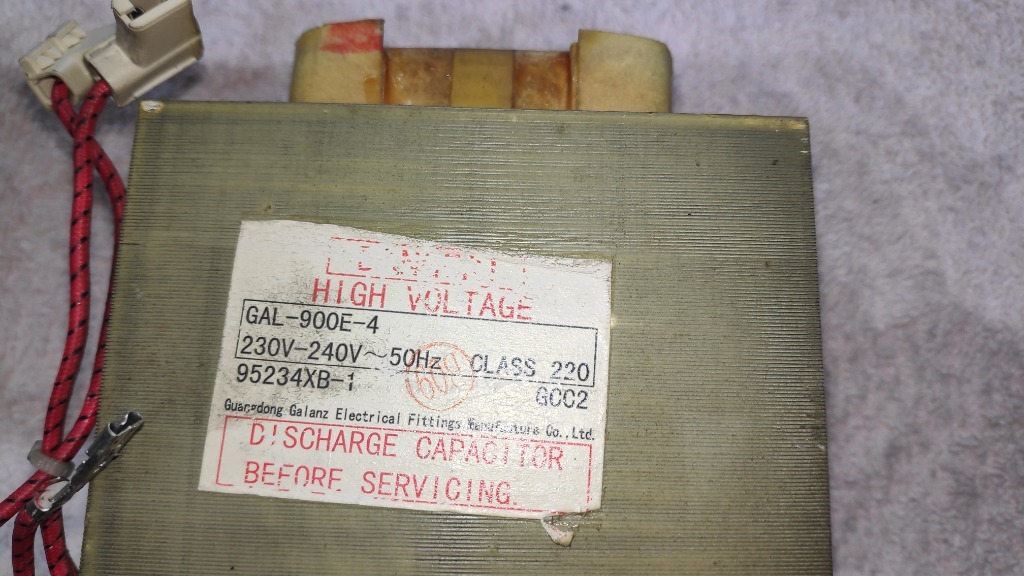 HIGH VOLTAGE
GAL-900E-4
230V-240V~50Hz CLASS 220
95234XB-1 GCC2
Guangdong Galanz Electrical Fittings Manufacture Co.,Ltd.
DISCHARGE CAPACITOR
BEFORE SERVICING.